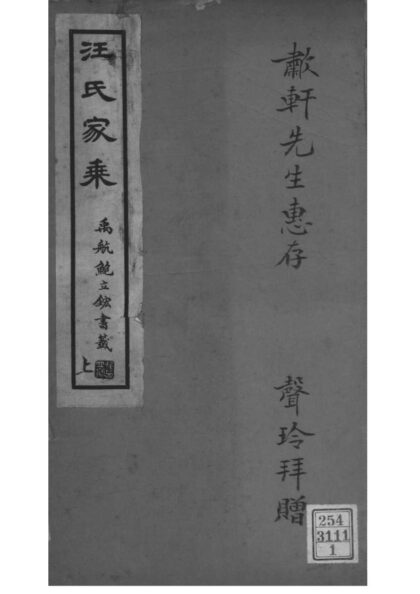 歗軒先生惠存
聲玲拜贈
汪氏家乘
禹航鮑立鋐書籤
上
254
3111
1